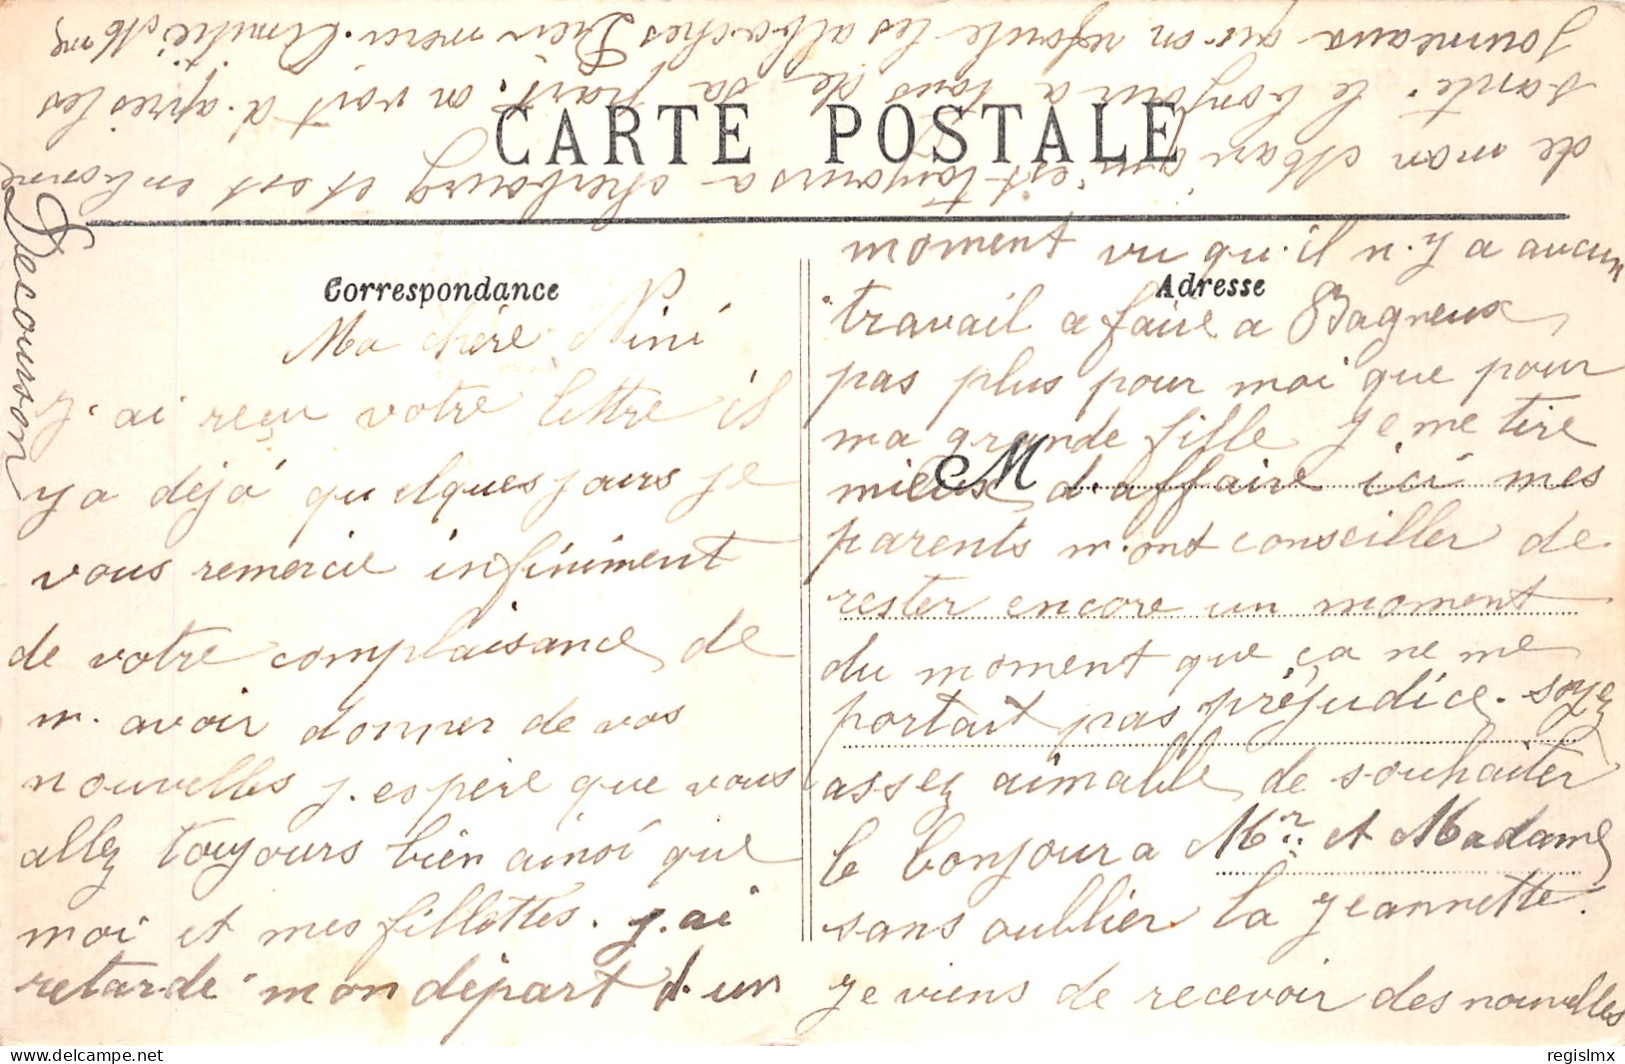 CARTE POSTALE
Correspondance
Adresse
M
Ma chère Nini
J'ai reçu votre lettre il
y a déjà quelques jours je
vous remercie infiniment
de votre complaisance de
m'avoir donner de vos
nouvelles j'espère que vous
allez toujours bien ainsi que
moi et mes fillettes. j'ai
retardé mon départ d'un
moment vu qu'il n'y a aucun
travail a faire a Bagneux
pas plus pour moi que pour
ma grande fille Je me tire
mieux d'affaire ici mes
parents m'ont conseiller de
rester encore un moment
du moment que ça ne me
portait pas préjudice. soyez
assez aimable de souhaiter
le bonjour a Mr. et Madame
sans oublier la Jeannette.
Je viens de recevoir des nouvelles
de mon Mari qui est toujours a cherbourg et est en bonne
santé. le bonjour a tous de sa part. on voit d'apres les
journeaux qu'on refoule les alboches Dieu merci. Amitié, Mme
Decourson
regislmx